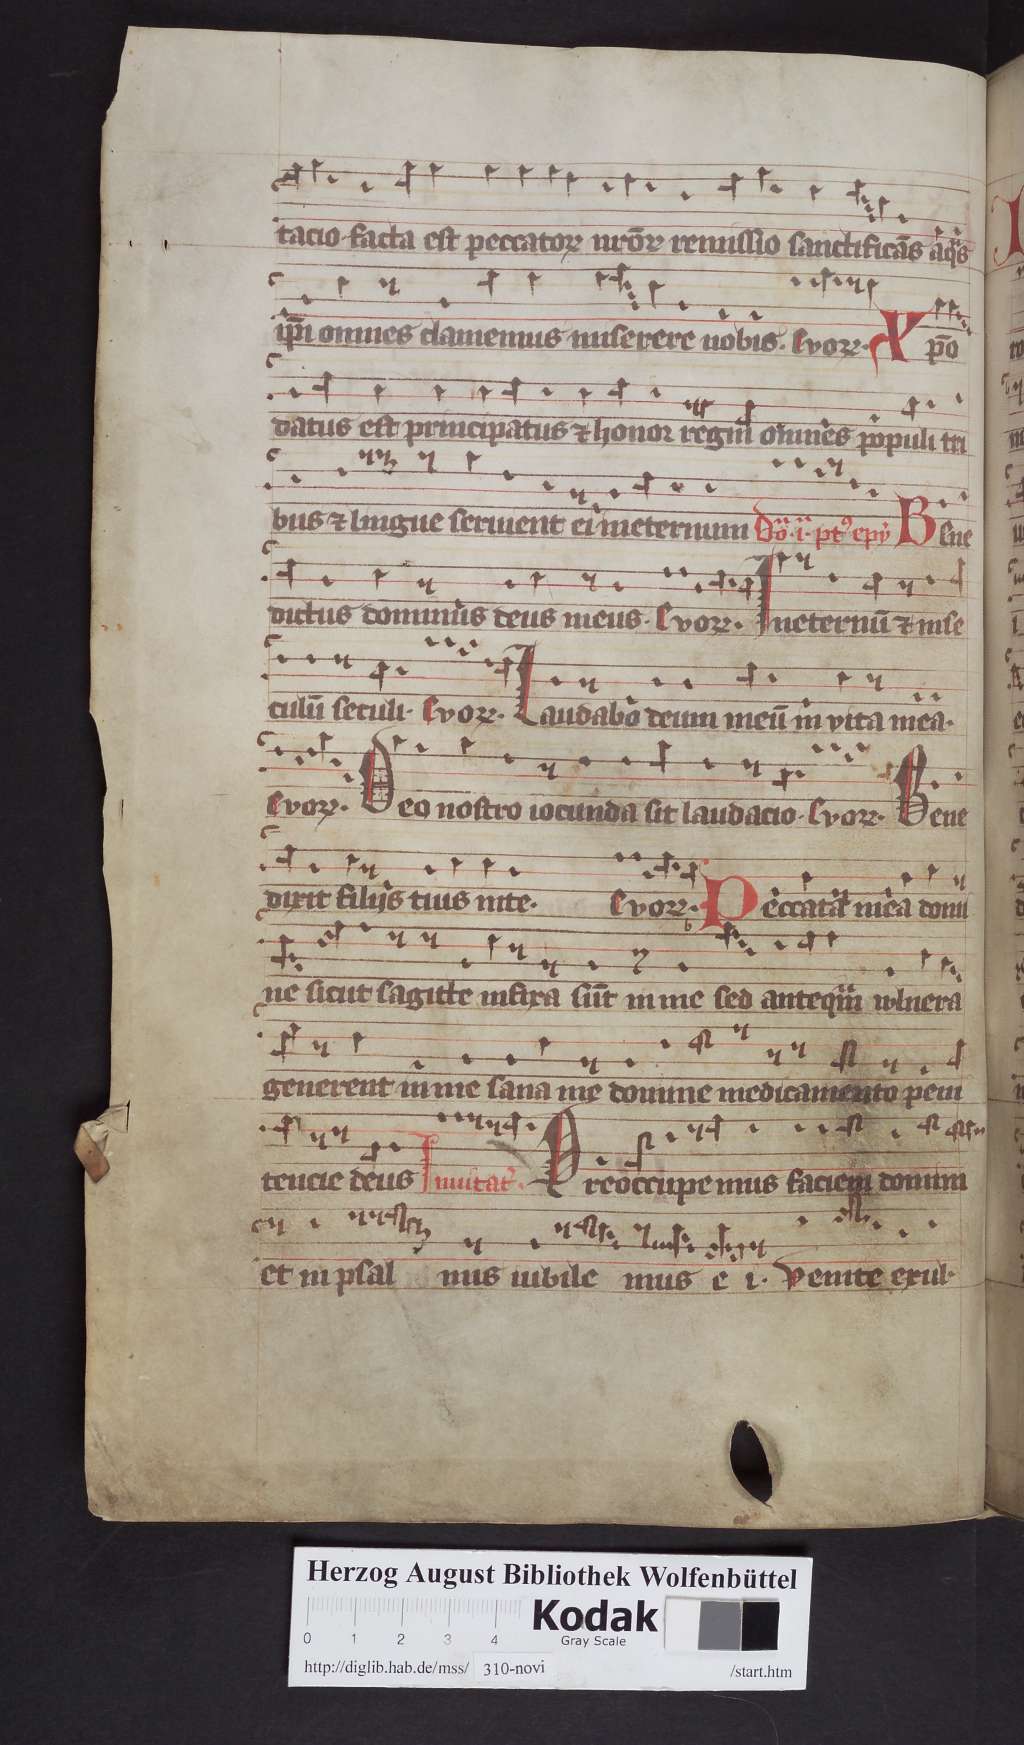 tacio facta est peccatoꝝ nr̄oꝝ remissio sanctificās aq̄s
ip̄i omnes clamemus miserere nobis. Evoꝝ. Xp̄o
datus est principatus ⁊ honor regni omnes populi tri
bus ⁊ lingue seruient ei ineternum Do. i. pt9 epy Bene
dictus dominus deus meus. Evoꝝ. Ineternū ⁊ inse
culū seculi. Evoꝝ. Laudabo deum meū in vita mea.
Evoꝝ. Deo nostro iocunda sit laudacio. Evoꝝ. Bene
dixit filijs tuis inte. Evoꝝ. Peccata mea domi
ne sicut sagitte infixa sūt in me sed anteqm̄ wlnera
generent in me sana me domine medicamento peni
tencie deus Inuitat. Preoccupemus faciem domini
et in psal mis iubile mus e i. Venite exul.
Herzog August Bibliothek Wolfenbüttel
0 1 2 3 4 Kodak
Gray Scale
http://diglib.hab.de/mss/ 310-novi /start.htm